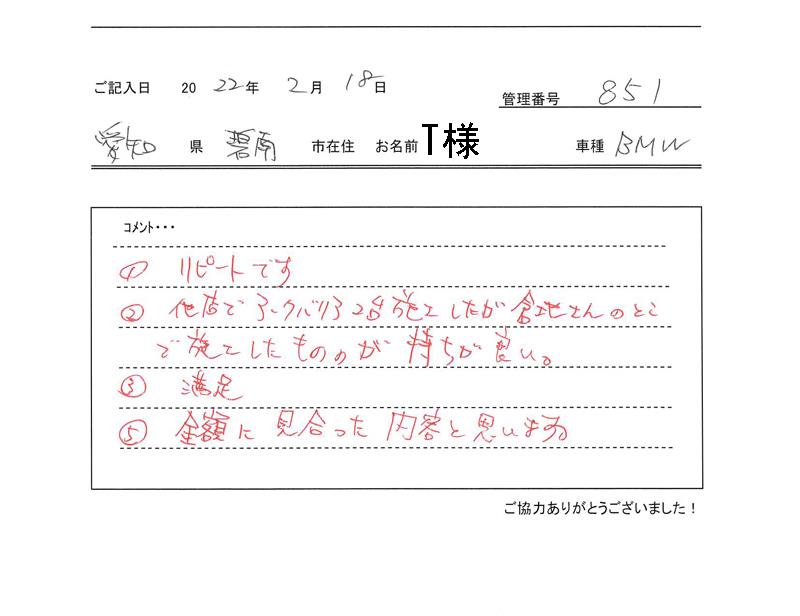 ご記入日 2022年 2月 18日
管理番号 851
愛知 県 碧南 市在住 お名前 T様 車種 BMW
コメント・・・
① リピートです
② 他店でアークバリア2台施工したが倉地さんのとこ
で施工したものの方が持ちが良い。
③ 満足
⑤ 金額に見合った内容と思います。
ご協力ありがとうございました！